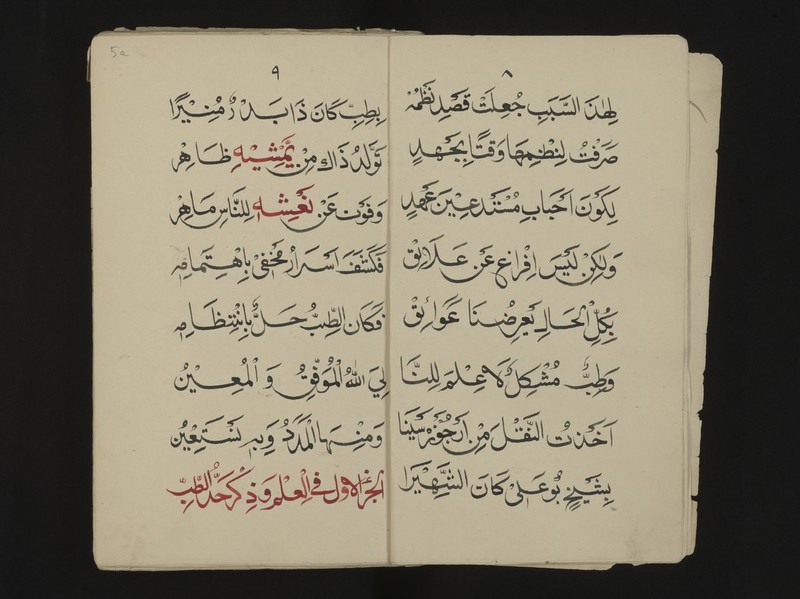 ٨
لِهٰذَا السَّبَبِ جُعِلَتْ قَصْدِ نَظْمُهْ
صَرَفْتُ لِنَظْمِهَا وَقْتًا بِجَهْدٍ
لِكَوْنَ اَحْبَابِ مُسْتَدْعِيْنَ عَهْدٍ
وَلٰكِنْ لَيْسَ اِفْرَاغٌ عَنْ عَلَائِقْ
بِكُلِّ الْحَالِ يَعْرِضُنَا عَوَائِقْ
وَطِبٌّ مُشْكِلٌ لَا عِلْمَ لِلنَّا
اَخَذْتُ النَّقْلَ مِنْ اَرْجُوْزَه سَيْنَا
بِشَيْخٍ بُوْ عَلِىْ كَانَ الشَّهِيْرَا
5a
٩
بِطِبٍّ كَانَ ذَا بَدْرٌ مُنِيْرًا
تَوَلَّدُ ذَاكَ مِنْ يَمْشِيْهِ ظَاهِرْ
وَفَوْتَ عَنْ نَعْشِهِ لِلنَّاسِ مَاهِرْ
فَكَشْفَ اَسْرَارٌ مَخْفِىْ بِاهْتِمَامِهِ
فَكَانَ الطِّبُّ حَلَّ بِانْتِظَامِهِ
لِيَ اللّٰهُ الْمُوَفِّقُ وَ الْمُعِيْنُ
وَمِنْهَا الْمَدَدُ وَبِهِ نَسْتَعِيْنُ
الجزء الاول في العلم و ذكر حد الطب